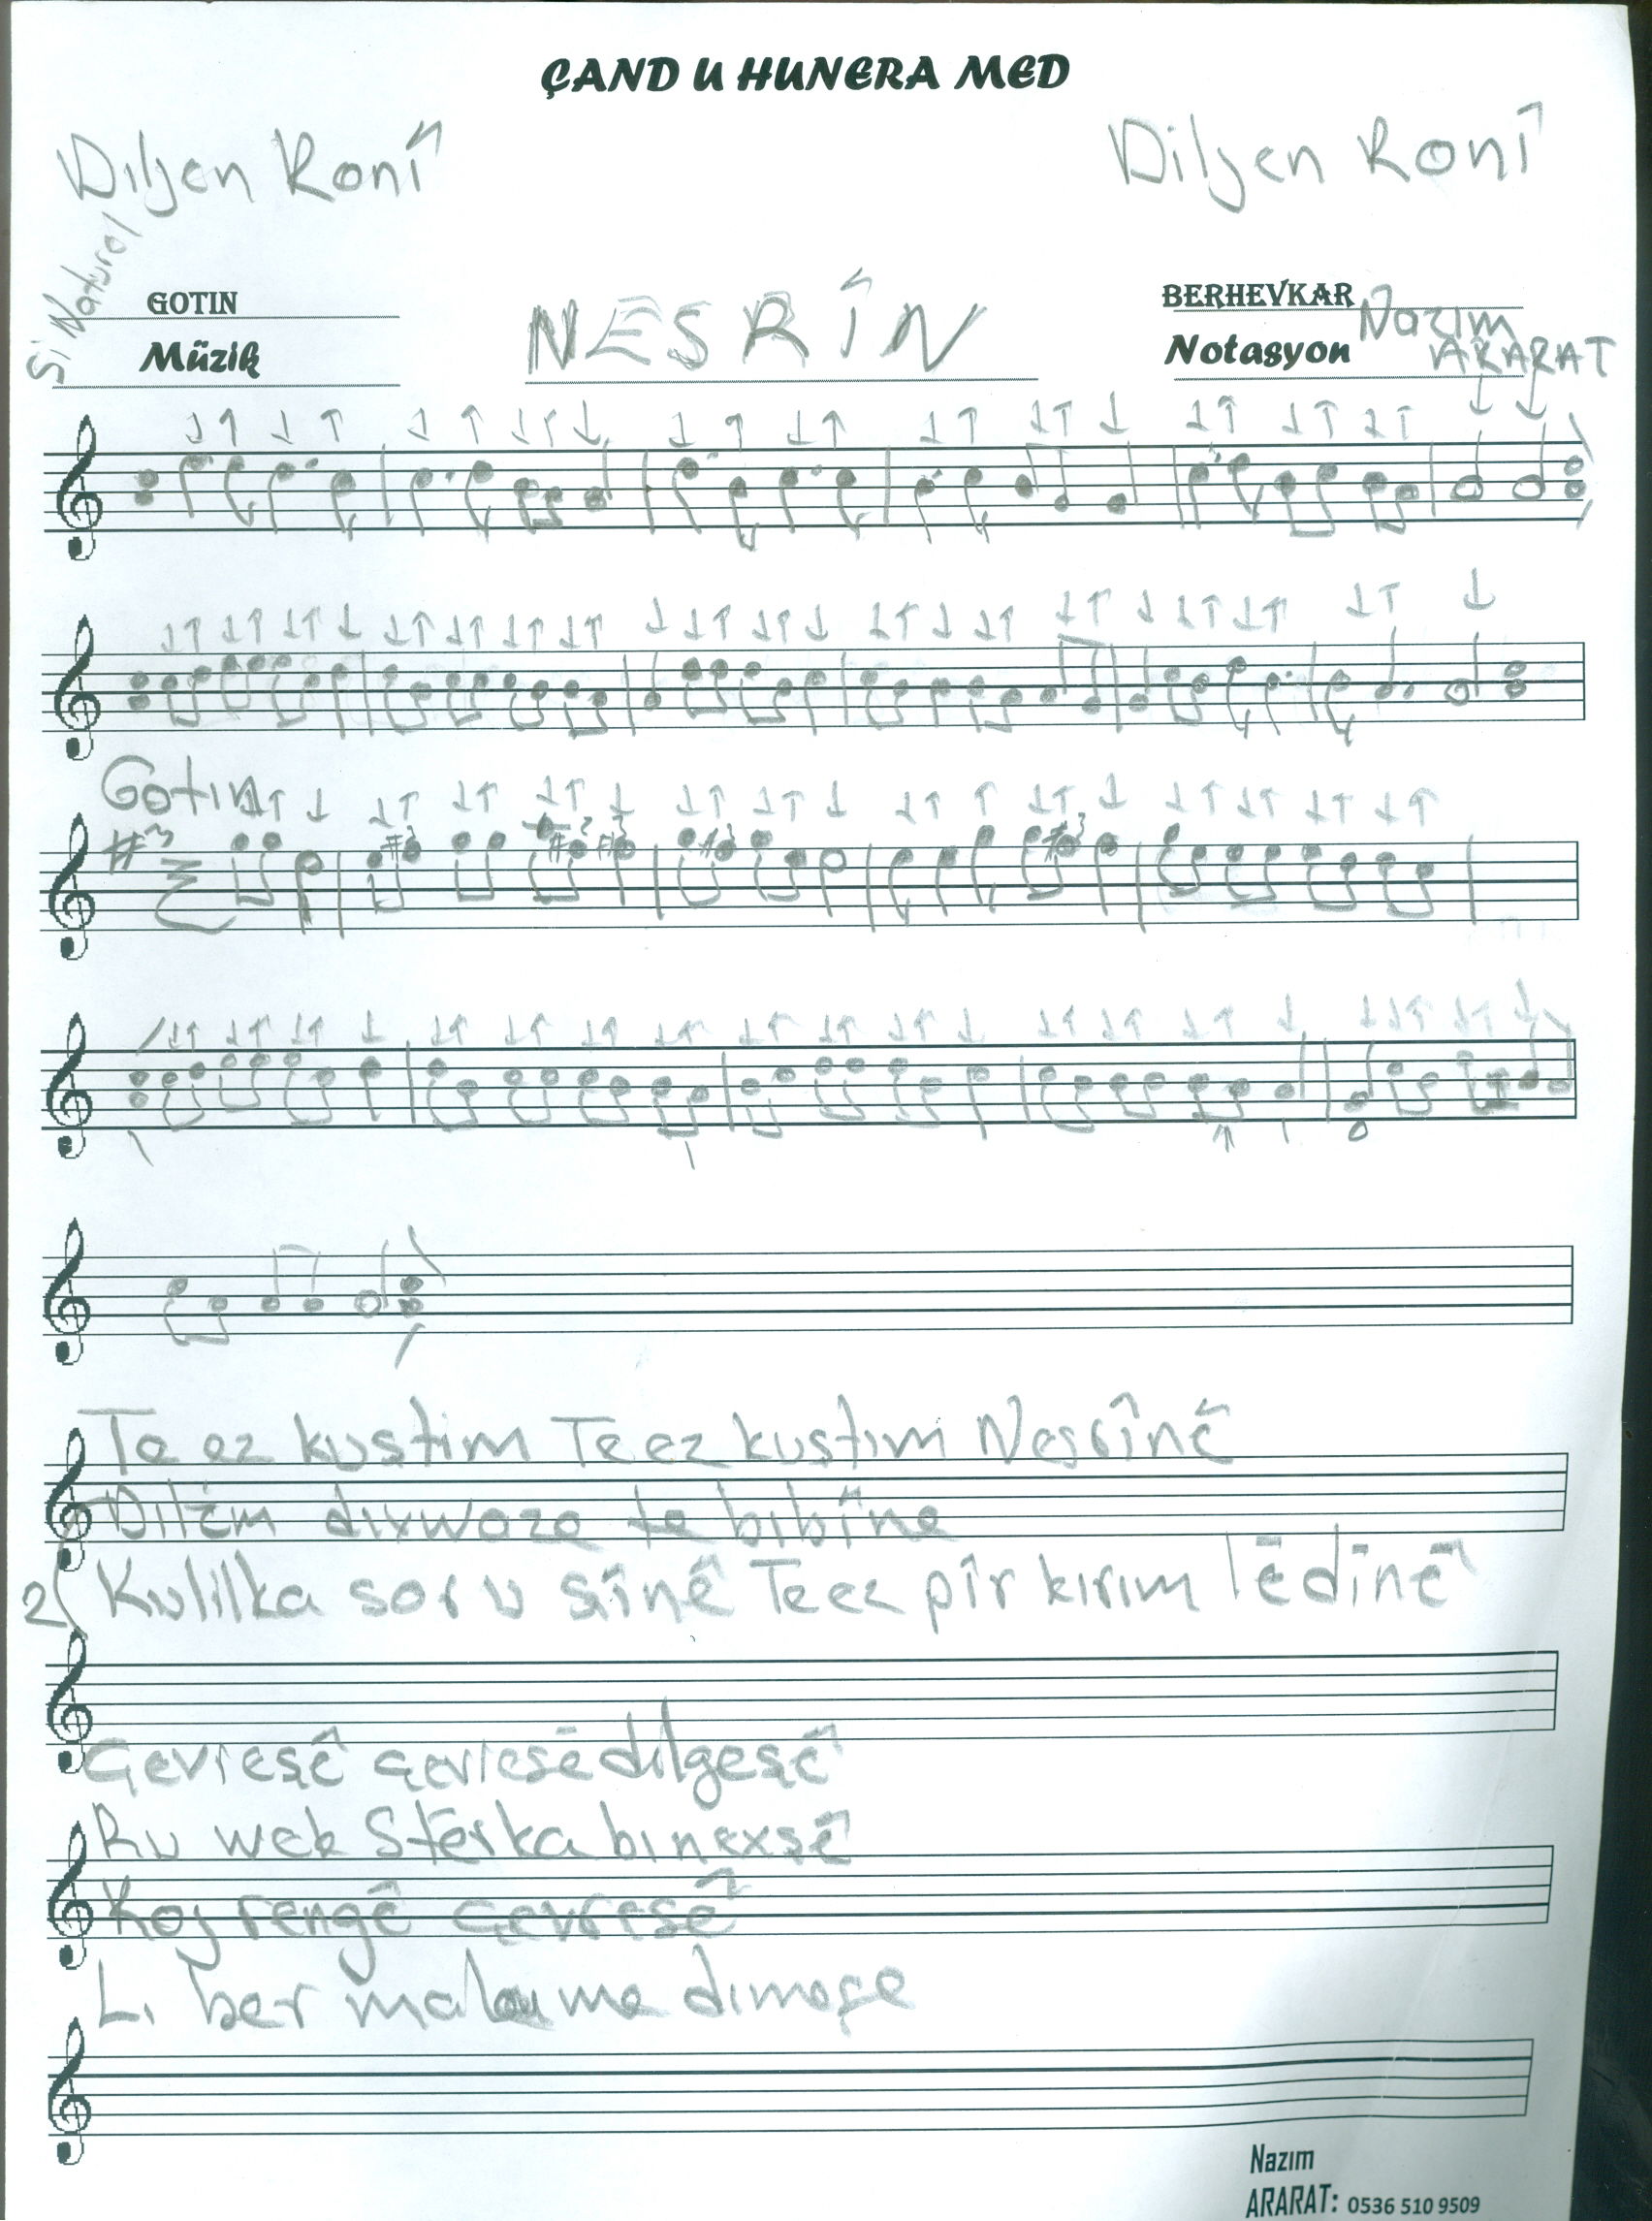 ÇAND U HUNERA MED
Diljen Ronî
Diljen Ronî
Si Natural
GOTIN
Müzik
NESRÎN
BERHEVKAR
Notasyon
Nazım
ARARAT
Gotın
Te ez kuştim Te ez kuştım Nesrînê
Dilêm dıxwaze te bıbîne
2
Kulilka sor u şînê Te ez pîr kırım lêdînê
Çevreşê çevreşê dılgeşê
Ru wek Stêrka bınexşê
rengê çevreşê
Li ber me dımeşe
Nazım
ARARAT: 0536 510 9509